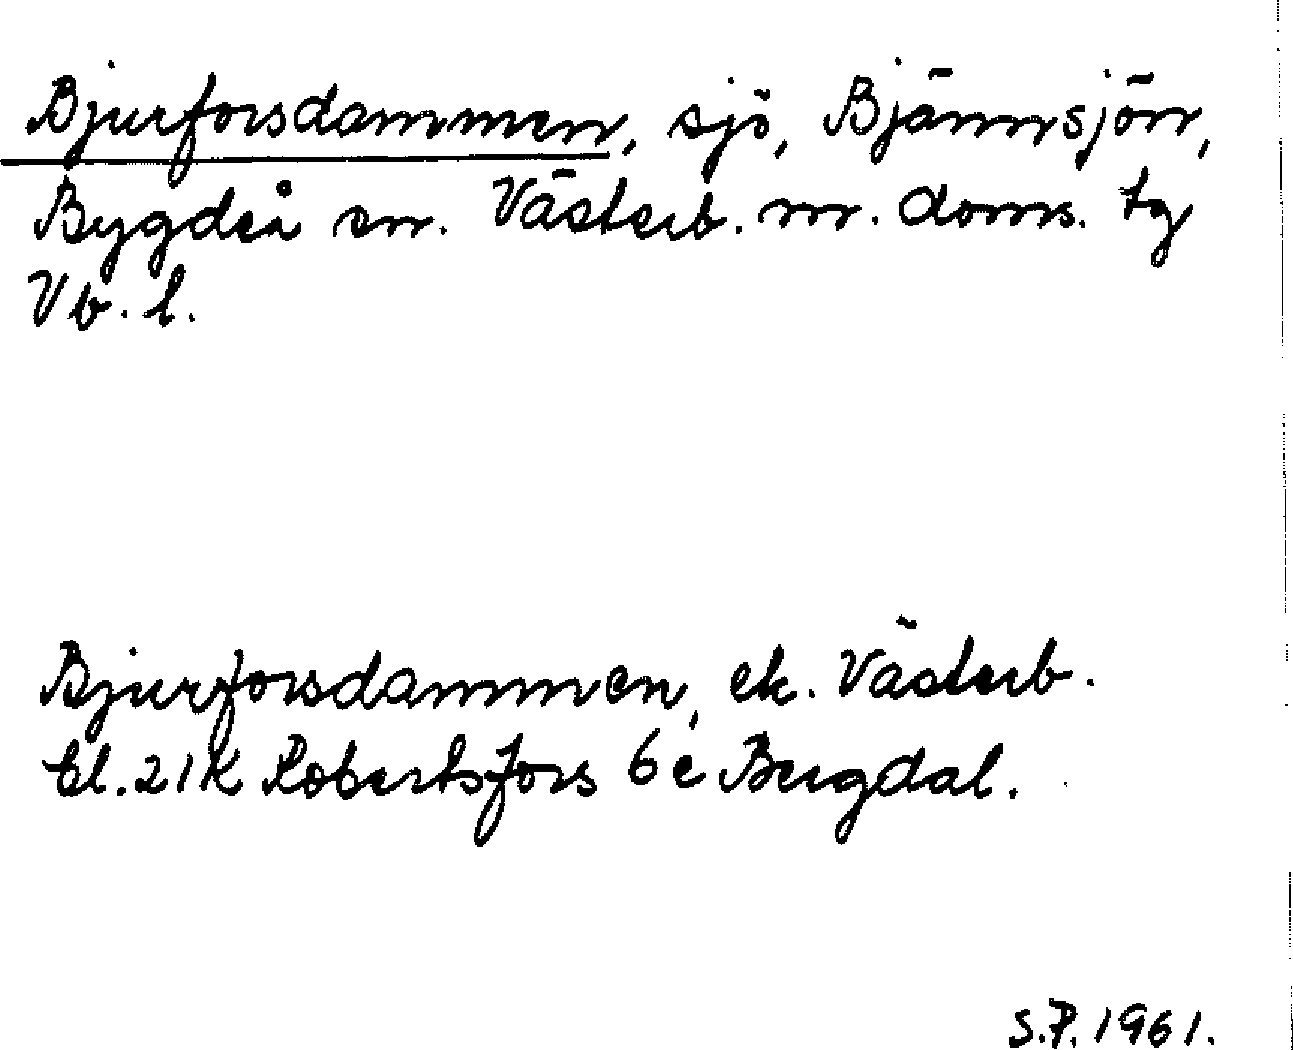 Bjurforsdammen, sjö, Bjännsjön,
Bygdeå sn. Västerb. n. doms. tg
Vb. l.
Bjurforsdammen, ek. Västerb.
bl. 21K Robertsfors 6e Bergdal.
S.P. 1961.